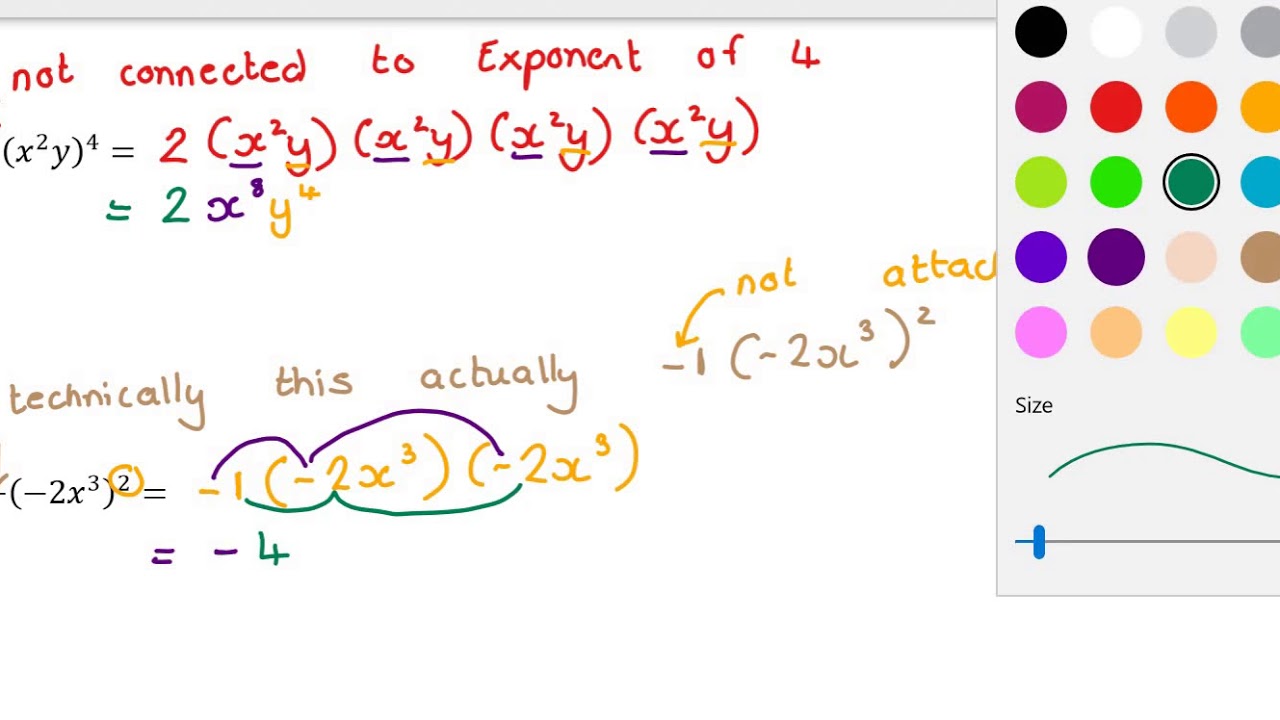 not connected to Exponent of 4
(x²y)⁴ = 2 (x²y) (x²y) (x²y) (x²y)
= 2 x⁸ y⁴
not attac
-1 (-2x³)²
technically this actually
-(-2x³)² = -1 (-2x³) (-2x³)
= - 4
Size